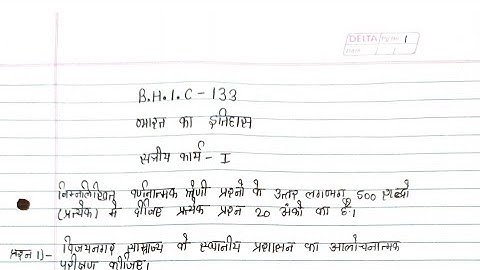 DELTA Pg No. 1
Date / /
B.H.I.C - 133
भारत का इतिहास
सत्रीय कार्य - I
निम्नलिखित वर्णनात्मक श्रेणी प्रश्नो के उत्तर लगभग 500 शब्दो
(प्रत्येक) मे दीजिए प्रत्येक प्रश्न 20 अंको का है।
प्रश्न 1)- विजयनगर साम्राज्य के स्थानीय प्रशासन का आलोचनात्मक
परीक्षण कीजिए।